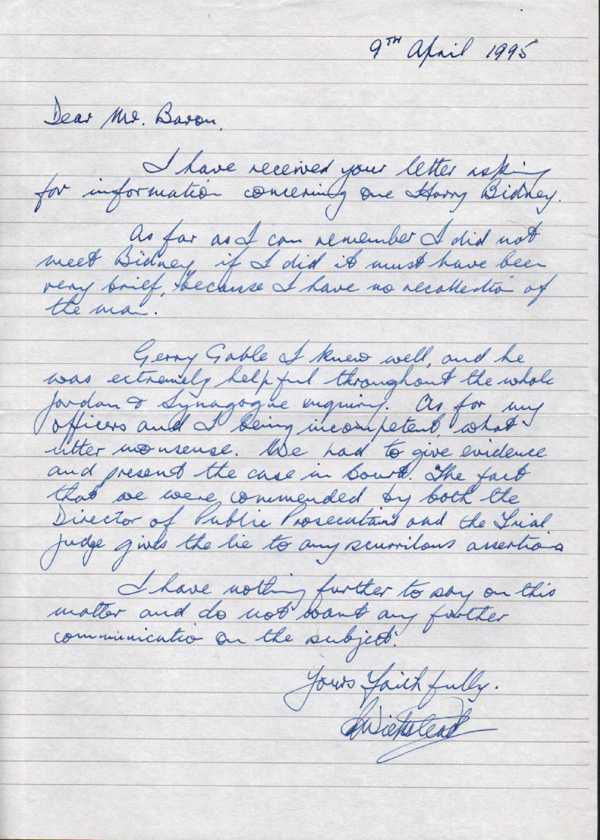 9TH April 1995
Dear Mr. Baron,
I have received your letter asking
for information concerning one Harry Bidney.
As far as I can remember I did not
meet Bidney, if I did it must have been
very brief, because I have no recollection of
the man.
Gerry Gable I knew well, and he
was extremely helpful throughout the whole
Jordan & Synagogue enquiry. As for my
officers and I being incompetent, what
utter nonsense. We had to give evidence
and present the case in Court. The fact
that we were commended by both the
Director of Public Prosecutions and the Trial
Judge gives the lie to any scurrilous assertions
I have nothing further to say on this
matter and do not want any further
communication on the subject.
Yours Faithfully.